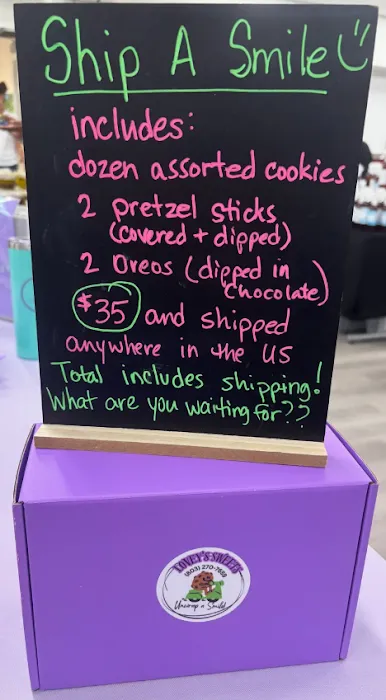 Ship A Smile
includes:
dozen assorted cookies
2 pretzel sticks
(covered + dipped)
2 Oreos (dipped in
Chocolate)
$35 and shipped
anywhere in the US
Total includes shipping!
What are you waiting for??
LOVEY'S SWEETS
(603) 270-7698
Unwrap a Smile